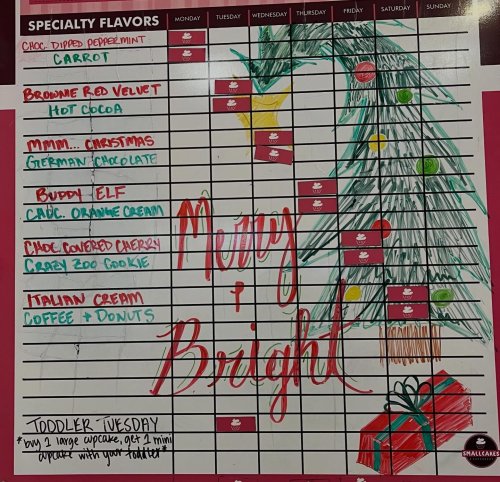 SPECIALTY FLAVORS MONDAY TUESDAY WEDNESDAY THURSDAY FRIDAY SATURDAY SUNDAY
CHOC. DIPPED PEPPERMINT
CARROT
BROWNIE RED VELVET
HOT COCOA
MMM... CHRISTMAS
GERMAN CHOCOLATE
BUDDY ELF
CHOC. ORANGE CREAM
CHOC. COVERED CHERRY
CRAZY ZOO COOKIE
ITALIAN CREAM
COFFEE + DONUTS
Merry
+
Bright
TODDLER TUESDAY
*buy 1 large cupcake, get 1 mini
cupcake with your toddler*
SMALLCAKES